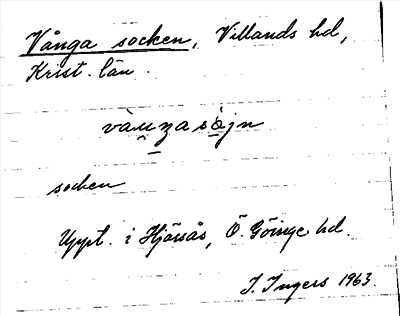 Vånga socken, Villands hd,
Krist. län.
socken
Uppt. i Hjärsås, Ö. Göinge hd.
I. Ingers 1963.